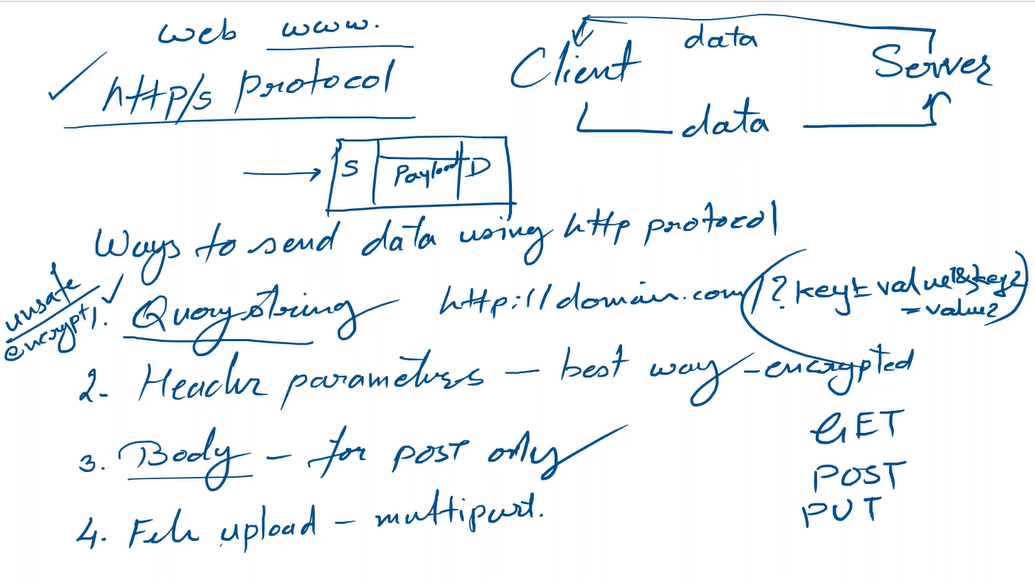 web www.
http/s protocol
Client data Server
data
S Payload D
Ways to send data using http protocol
unsafe
encrypt
1. Querystring http://domain.com/?key1=value1&key2
=value2
2. Header parameters – best way – encrypted
3. Body – for post only
4. File upload – multipart.
GET
POST
PUT